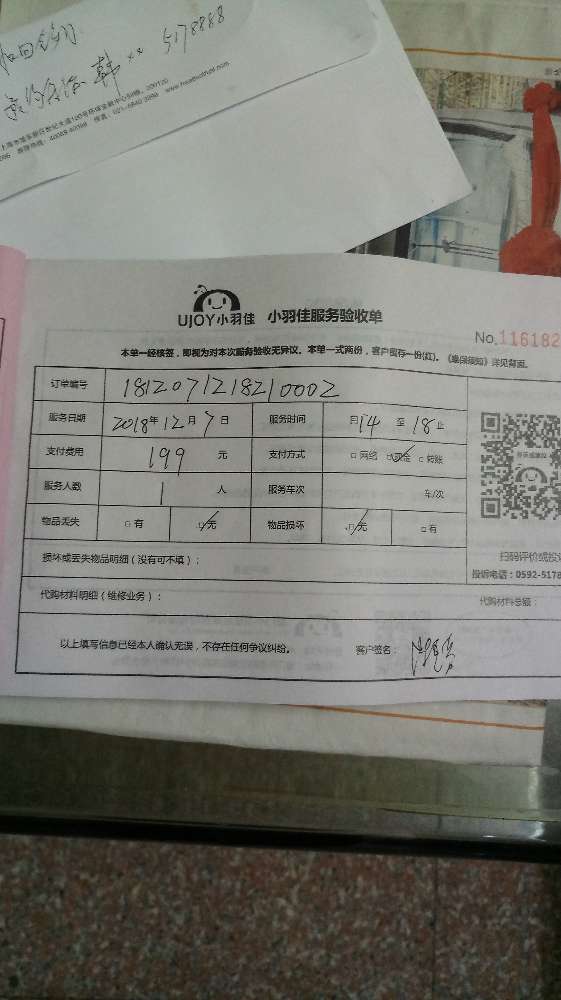 5178888
www.healthcthai.com
UJOY小羽佳 小羽佳服务验收单
No.116182
本单一经核签，即视为对本次服务验收无异议。本单一式两份，客户留存一份(红)。《维保须知》详见背面。
订单编号 1812071218210002
服务日期 2018年12月7日 服务时间 14至18止
支付费用 199元 支付方式 □网络 □现金 □转账
服务人数 1人 服务车次 车/次
物品丢失 □有 □无 物品损坏 □无 □有
扫码评价或投
损坏或丢失物品明细（没有可不填）：
投诉电话：0592-5178
代购材料明细（维修业务）： 代购材料总额：
以上填写信息已经本人确认无误，不存在任何争议纠纷。 客户签名：